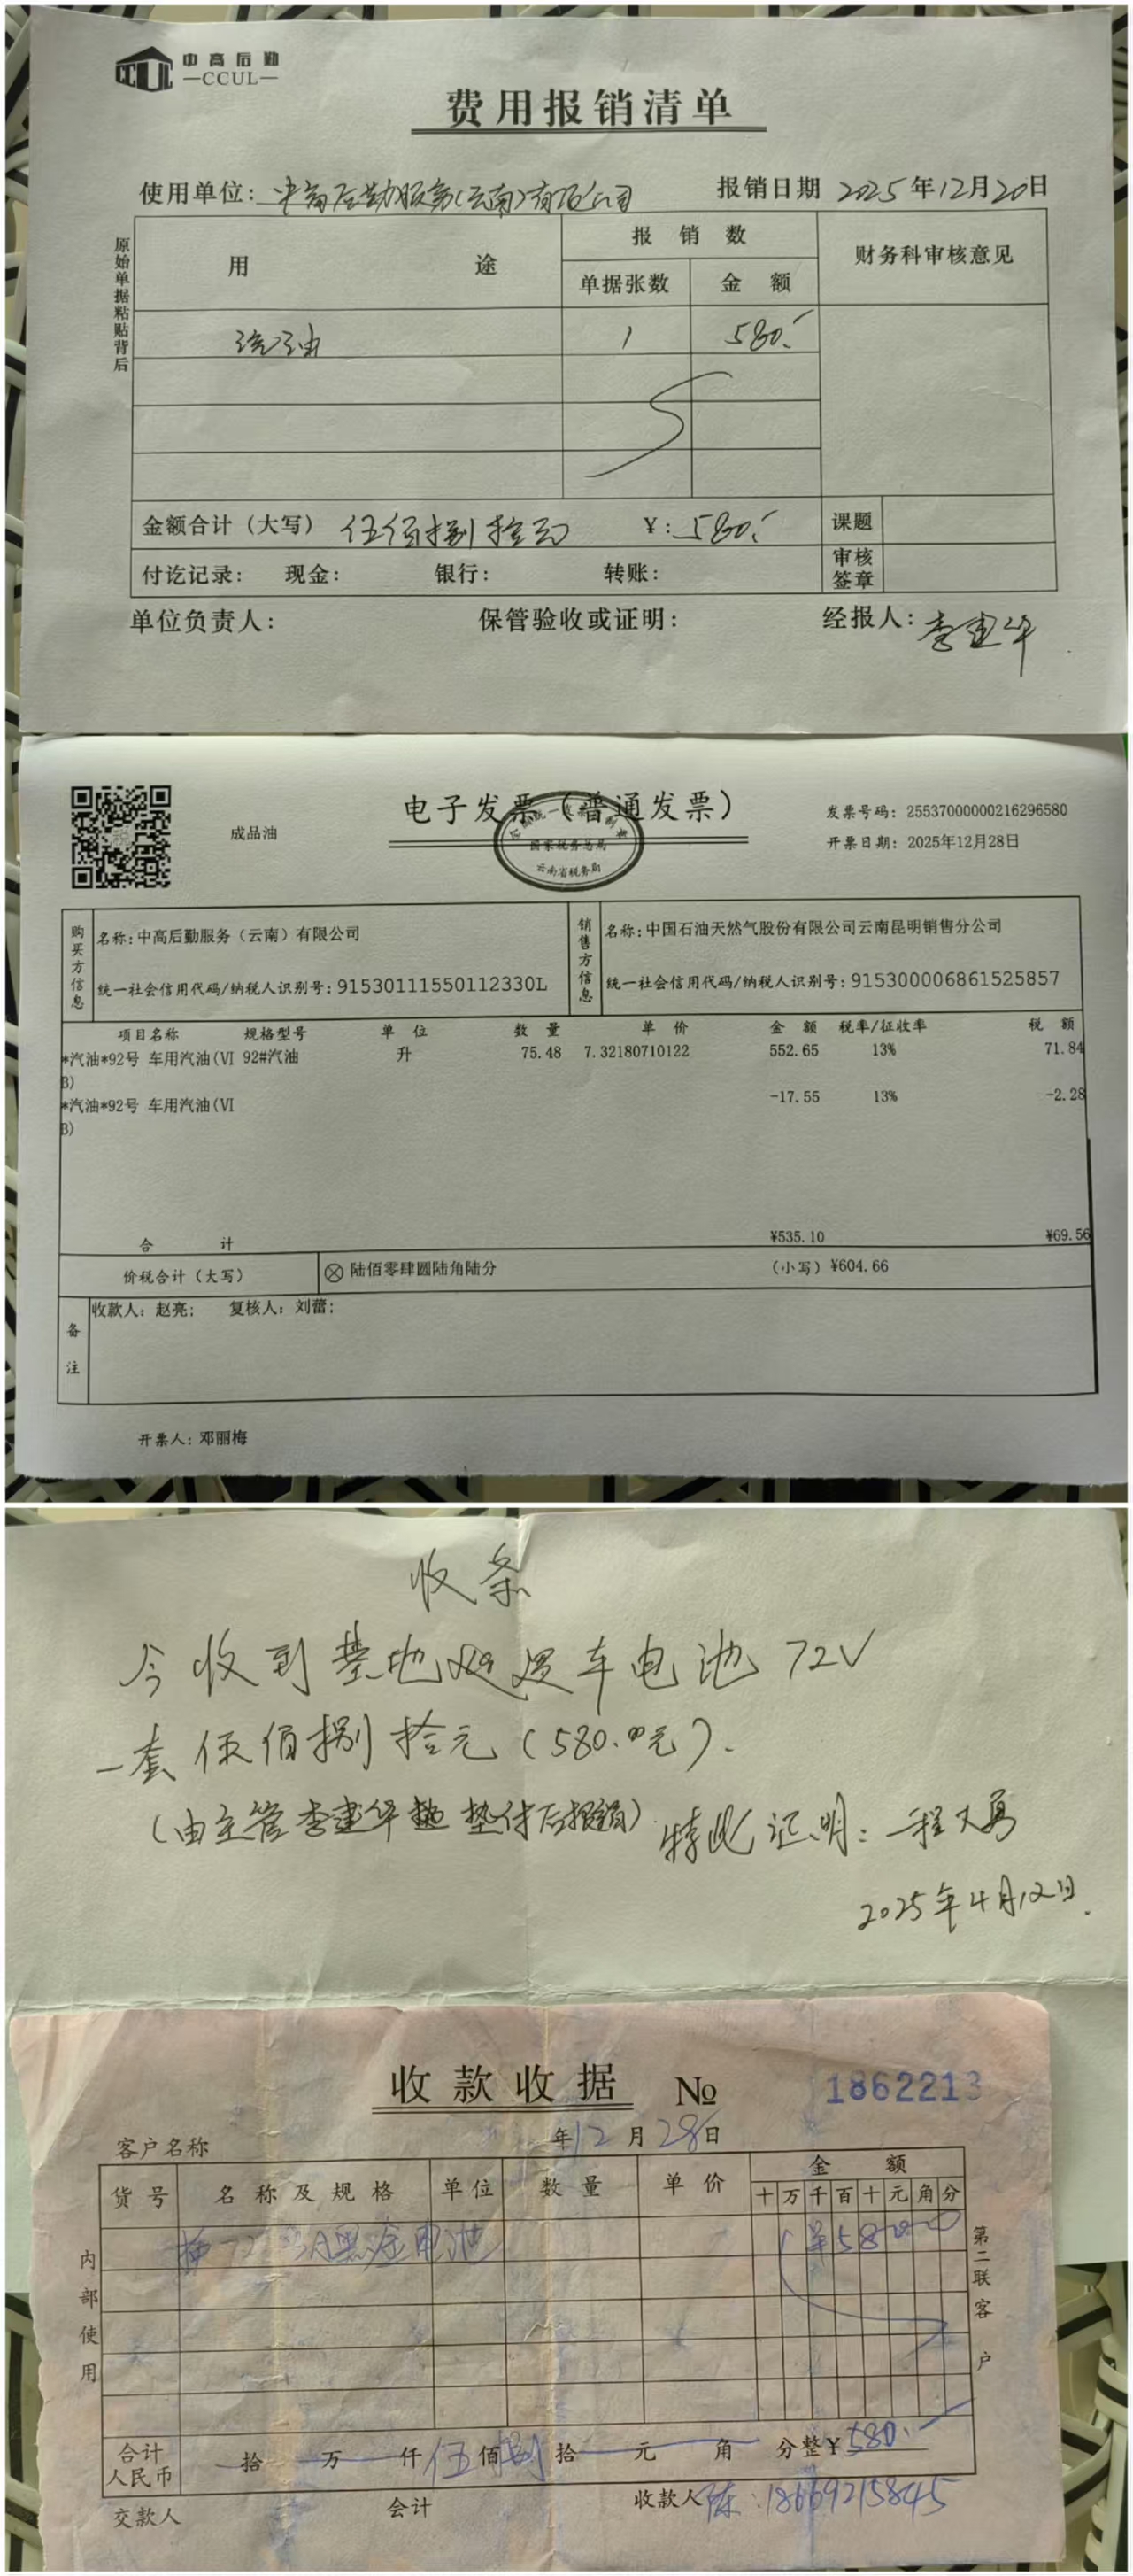 中高后勤
—CCUL—
费用报销清单
使用单位：中高后勤服务(云南)有限公司 报销日期 2025年12月20日
原始单据粘贴背后
用途 报销数 财务科审核意见
单据张数 金额
汽油 1 580.-
金额合计（大写） 伍佰捌拾元 ¥：580.- 课题
付讫记录： 现金： 银行： 转账： 审核签章
单位负责人： 保管验收或证明： 经报人：李建华
成品油
电子发票（普通发票）
国家税务总局
云南省税务局
发票号码：25537000000216296580
开票日期：2025年12月28日
购买方信息
名称：中高后勤服务（云南）有限公司
统一社会信用代码/纳税人识别号：91530111550112330L
销售方信息
名称：中国石油天然气股份有限公司云南昆明销售分公司
统一社会信用代码/纳税人识别号：915300006861525857
项目名称 规格型号 单位 数量 单价 金额 税率/征收率 税额
*汽油*92号 车用汽油(VI 92#汽油 升 75.48 7.32180710122 552.65 13% 71.84
B)
*汽油*92号 车用汽油(VI -17.55 13% -2.28
B)
合计 ¥535.10 ¥69.56
价税合计（大写） ⊗ 陆佰零肆圆陆角陆分 （小写）¥604.66
备注
收款人：赵亮； 复核人：刘蕾；
开票人：邓丽梅
收条
今收到基地巡逻车电池72V
一套伍佰捌拾元（580.00元）.
（由主管李建华 垫付后报销）特此证明：程大勇
2025年4月12日.
收款收据 No 1862213
客户名称 年12月28日
货号 名称及规格 单位 数量 单价 金额
十 万 千 百 十 元 角 分
黑金电池
内部使用
第二联客户
合计人民币 拾 万 仟 伍 佰 捌 拾 元 角 分整¥580.-
交款人 会计 收款人 陈：18669215845